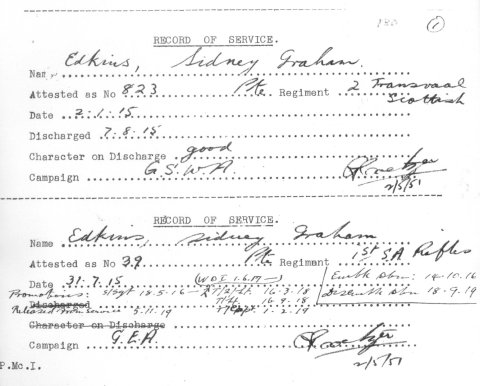 180 1
RECORD OF SERVICE.
Name Edkins, Sidney Graham.
Attested as No 823 Pte Regiment 2 Transvaal Scottish
Date 2.1.15
Discharged 7.8.15
Character on Discharge good
Campaign G.S.W.A.
2/5/51
RECORD OF SERVICE.
Name Edkins, Sidney Graham
Attested as No 39 Pte Regiment 1st S.A. Rifles
Date 31.7.15 1.6.17 Emb Dbn: 14.10.16
Promotions: S/Sgt 18.5.16 T/2/Lt 16.3.18 Disemb Dbn 18.9.19
Discharged T/Lt. 16.9.18
Released from service 5.11.19 1.2.19
Character on Discharge
Campaign G.E.A.
2/5/51
P.Mc.I.